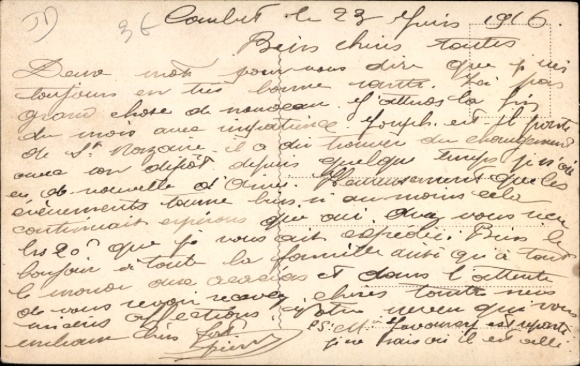 JD 36 le 23 Juin 1916.
Bien chères tantes
Deux mots pour vous dire que je suis
toujours en très bonne santé. J'ai pas
grand chose de nouveau. J'attends la fin
du mois avec impatience est
de St Nazaire. il a dû trouver du changement
avec son dépôt depuis quelque temps j'ai
eu de nouvelle Heureusement que les
évènements tourne bien si au moins cela
continuait espérons que oui. avez vous reçu
les 20 que je vous ait expédié. Bien le
bonjour à toute la famille ainsi qu'à tout
le monde aux et dans l'attente
de vous revoir recevez chères tantes mes
affections. Votre neveu qui vous
embrasse bien fort
Pierre
P.S. Mr est reparti
je ne sais où il est allé